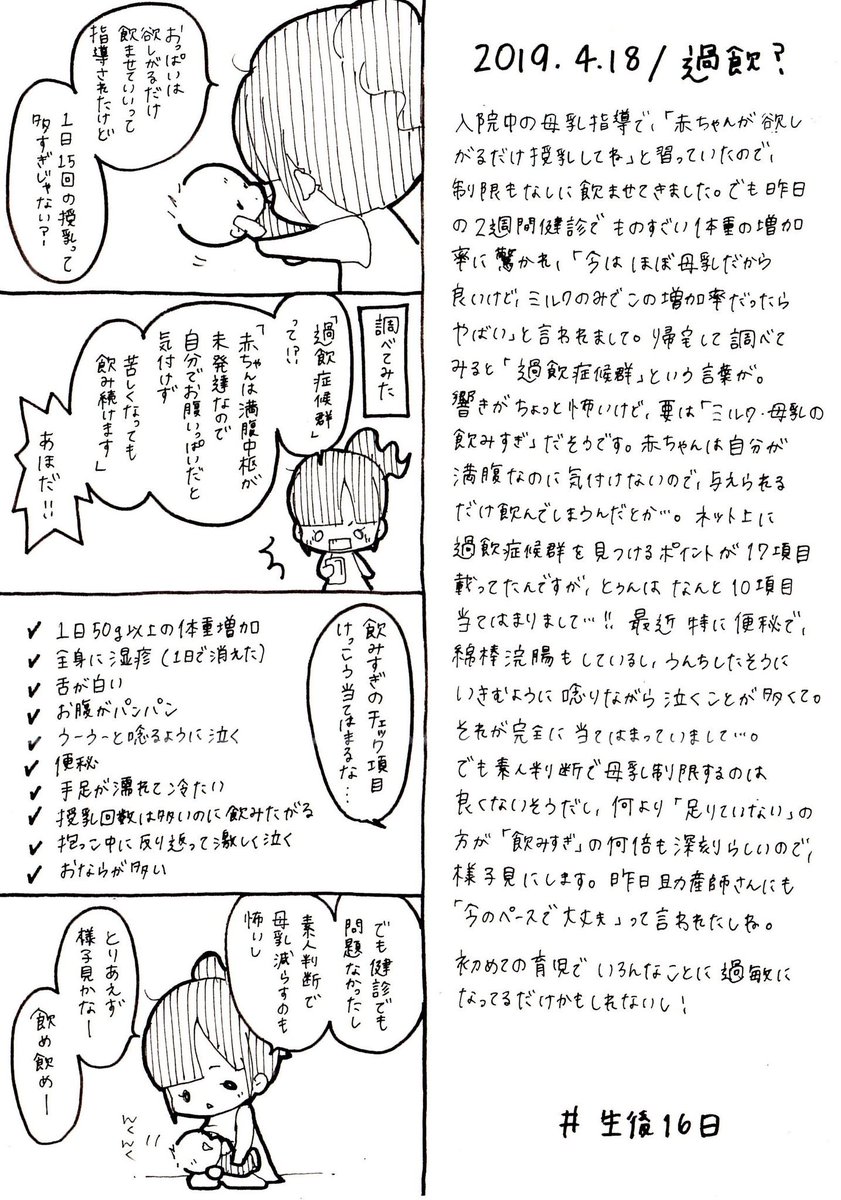 おっぱいは
欲しがるだけ
飲ませていいって
指導されたけど
1日15回の授乳って
多すぎじゃない？
調べてみた
「過飲症候群」
って!?
「赤ちゃんは満腹中枢が
未発達なので
自分でお腹いっぱいだと
気付けず
苦しくなっても
飲み続けます」
あほだ!!
飲みすぎのチェック項目
けっこう当てはまるな…
✓ 1日50g以上の体重増加
✓ 全身に湿疹（1日で消えた）
✓ 舌が白い
✓ お腹がパンパン
✓ ウーウーと唸るように泣く
✓ 便秘
✓ 手足が濡れて冷たい
✓ 授乳回数は多いのに飲みたがる
✓ 抱っこ中に反り返って激しく泣く
✓ おならが多い
でも健診でも
問題なかったし
素人判断で
母乳減らすのも
怖いし
とりあえず
様子見かなー
飲め飲めー
んくんく
2019.4.18/過飲？
入院中の母乳指導で、「赤ちゃんが欲し
がるだけ授乳してね」と習っていたので、
制限もなしに飲ませてきました。でも昨日
の2週間健診でものすごい体重の増加
率に驚かれ、「今はほぼ母乳だから
良いけど、ミルクのみでこの増加率だったら
やばい」と言われまして。帰宅して調べて
みると「過飲症候群」という言葉が。
響きがちょっと怖いけど、要は「ミルク・母乳の
飲みすぎ」だそうです。赤ちゃんは自分が
満腹なのに気付けないので、与えられる
だけ飲んでしまうんだとか…。ネット上に
過飲症候群を見つけるポイントが17項目
載ってたんですが、とぅんはなんと10項目
当てはまりまして…!! 最近特に便秘で、
綿棒浣腸もしているし、うんちしたそうに
いきむように唸りながら泣くことが多くて。
それが完全に当てはまっていまして…。
でも素人判断で母乳制限するのは
良くないそうだし、何より「足りていない」の
方が「飲みすぎ」の何倍も深刻らしいので、
様子見にします。昨日助産師さんにも
「今のペースで大丈夫」って言われたしね。
初めての育児でいろんなことに過敏に
なってるだけかもしれないし！
# 生後16日